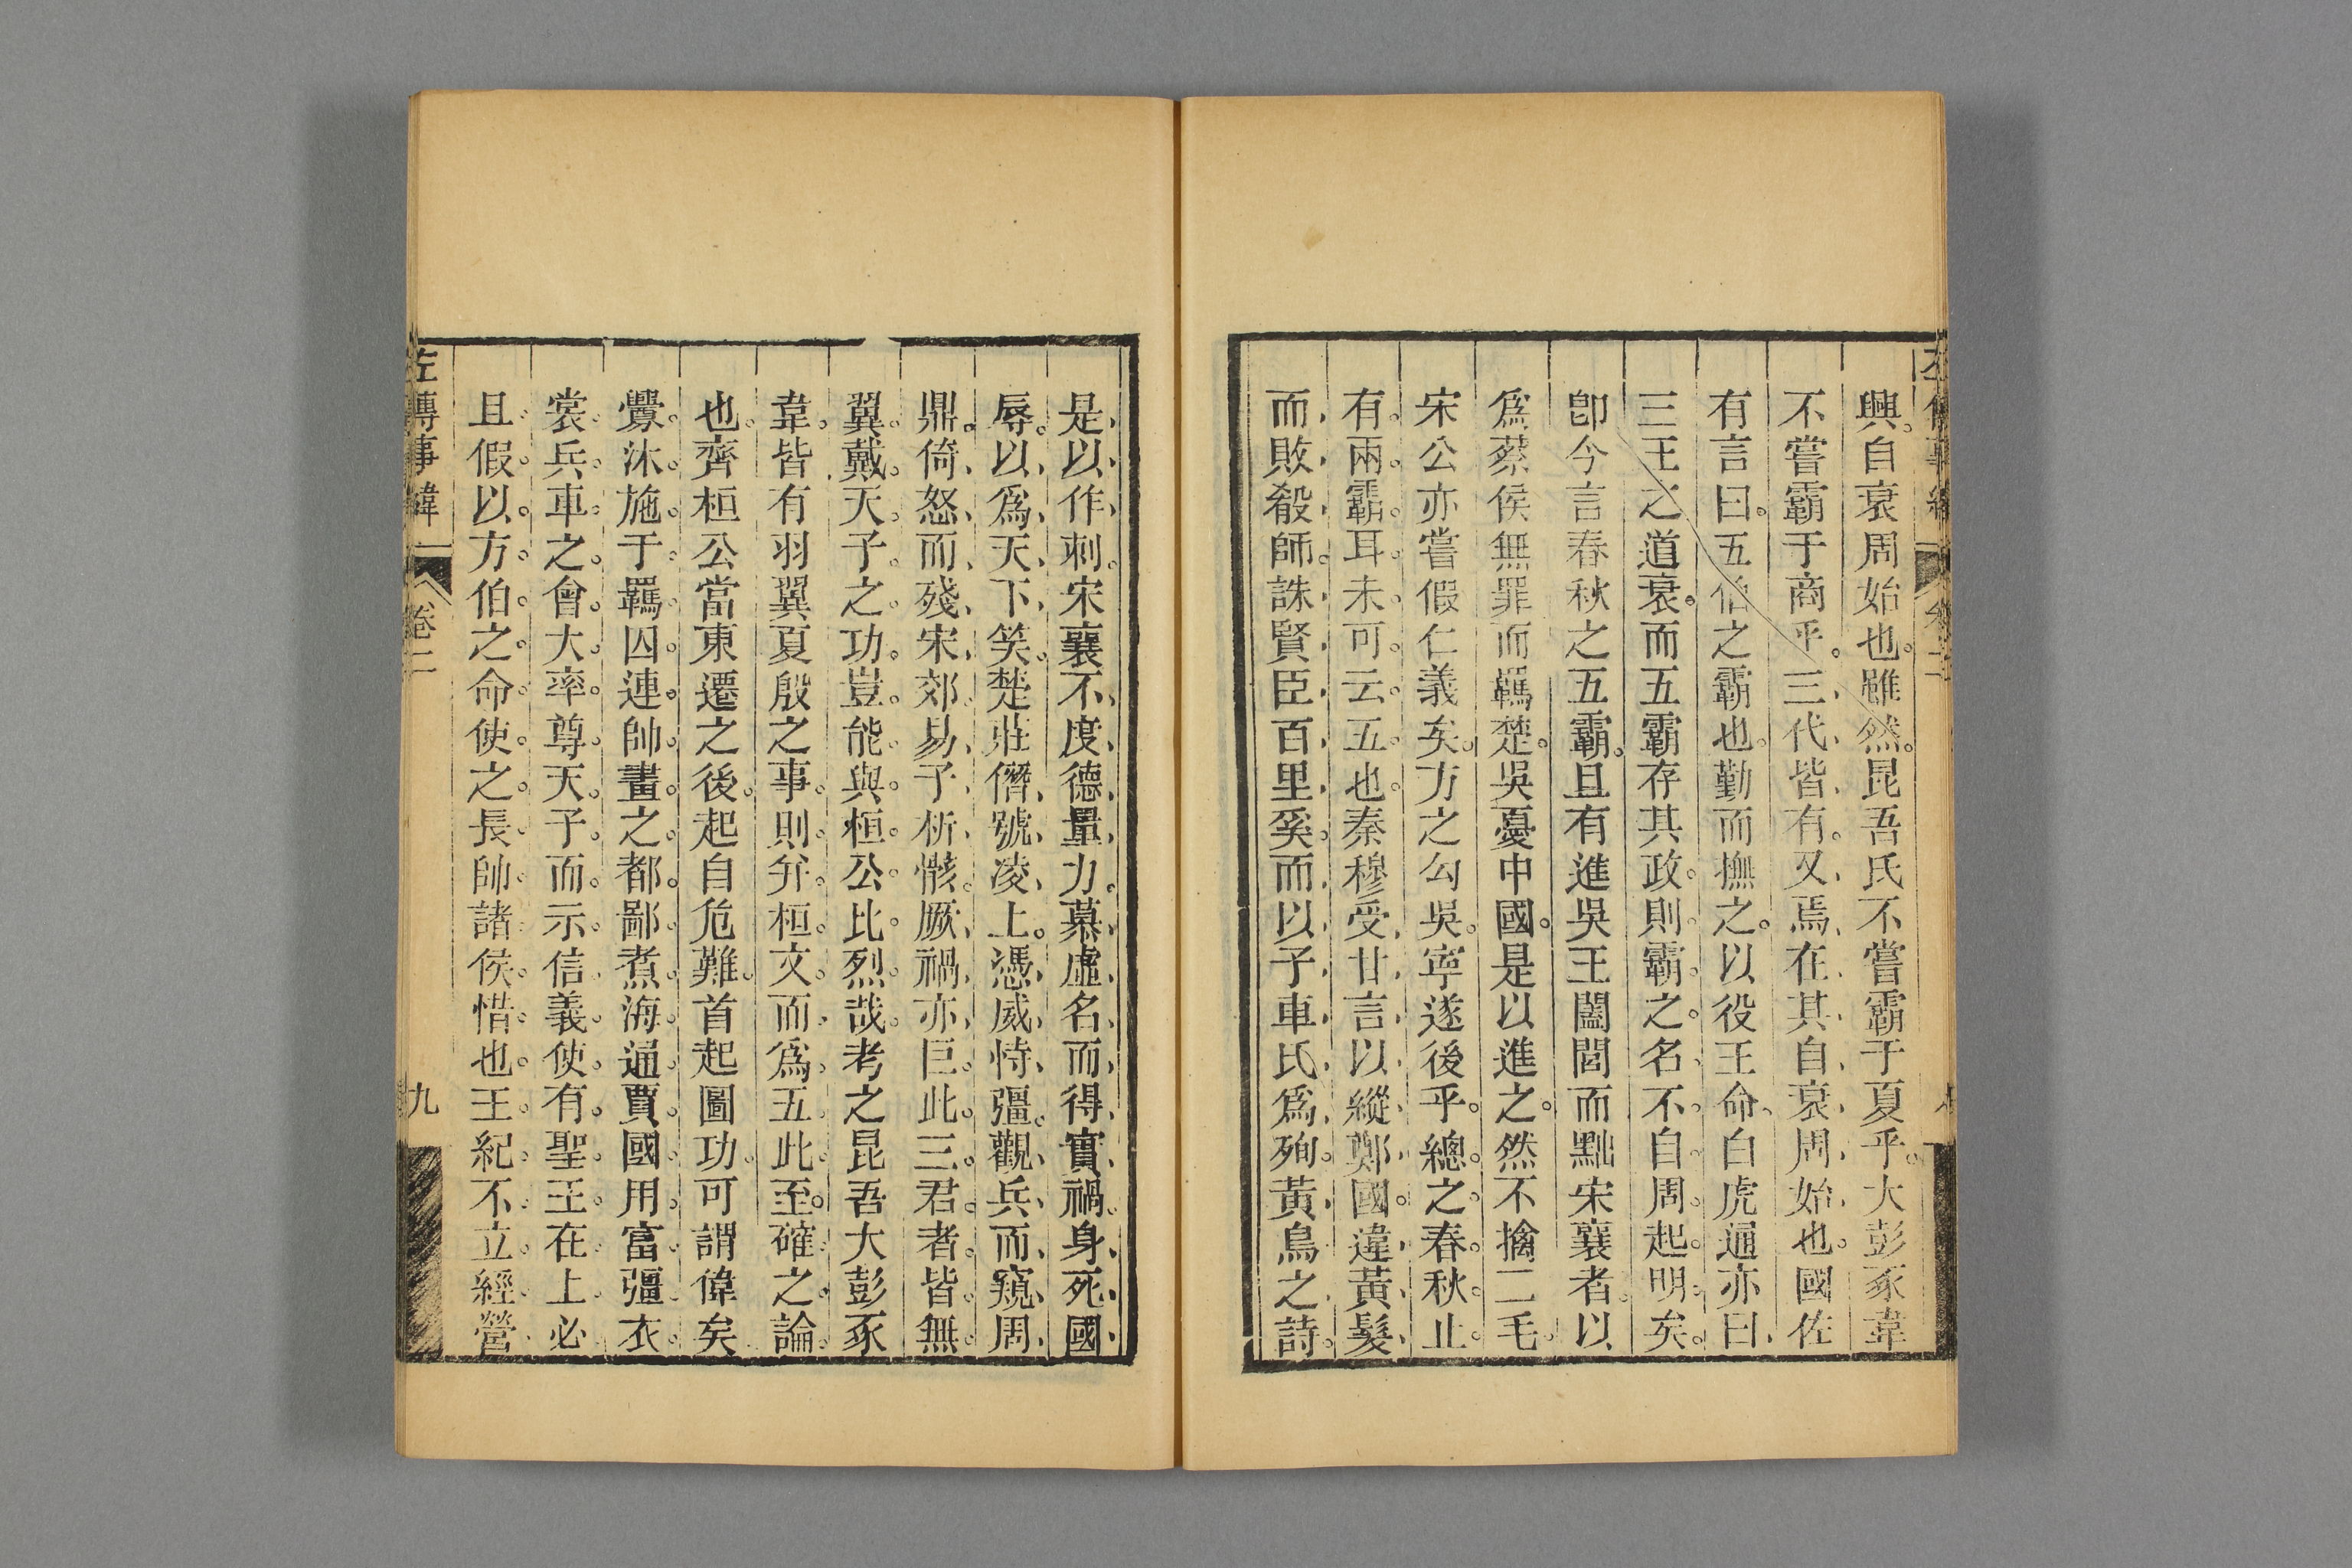 興。自衰周始也。雖然。昆吾氏不嘗霸于夏乎。大彭豕韋
不嘗霸于商乎。三代皆有。又焉在其自衰周始也。國佐
有言曰。五伯之霸也。勤而撫之。以役王命、白虎通亦曰、
三王之道衰。而五霸存其政。則霸之名、不自周起明矣。
卽今言春秋之五霸。且有進吳王闔閭而黜宋襄者。以
爲蔡侯無罪而羈楚。吳憂中國。是以進之。然不擒二毛。
宋公亦嘗假仁義矣。方之勾吳。寧遂後乎。總之春秋止
有兩霸耳。未可云五也。秦穆受甘言以縱鄭國。違黃髮、
而敗殽師。誅賢臣百里奚。而以子車氏爲殉。黃鳥之詩。
是以作刺。宋襄不度德量力。慕虛名而得實禍、身死國
辱。以爲天下笑。楚莊僭號凌上。憑威恃彊。觀兵而窺周
鼎。倚怒而殘宋郊。易子析骸。厥禍亦巨。此三君者。皆無
翼戴天子之功。豈能與桓公比烈哉。考之昆吾大彭豕
韋。皆有羽翼夏殷之事。則弁桓文而爲五。此至確之論
也。齊桓公當東遷之後。起自危難。首起圖功。可謂偉矣
釁沐施于羈囚。連帥畫之都鄙。煮海通賈。國用富彊。衣
裳兵車之會。大率尊天子而示信義。使有聖王在上。必
且假以方伯之命。使之長帥諸侯。惜也王紀不立。經營
左傳事緯
卷二
九